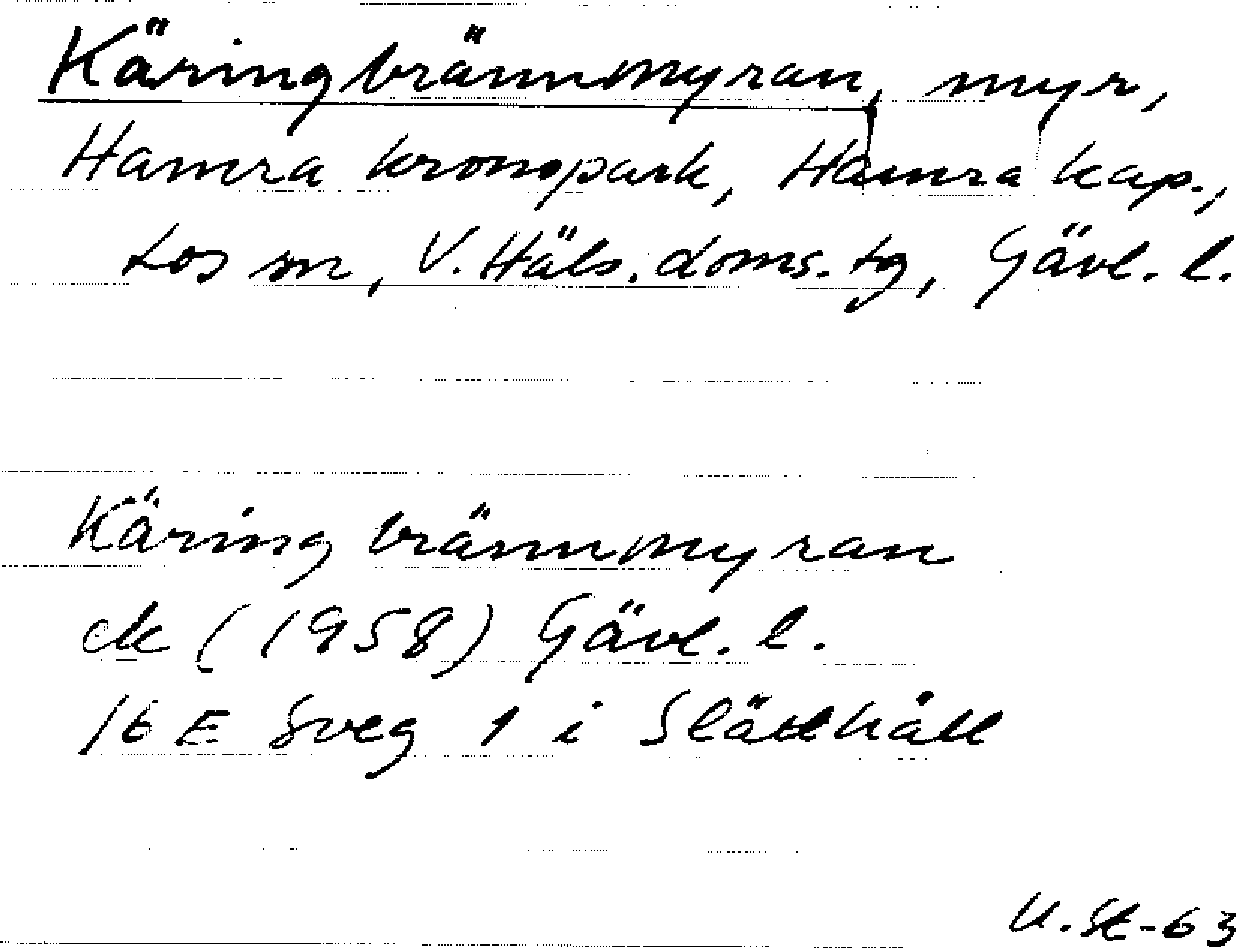 Käringbrännmyran, myr,
Hamra kronopark, Hamra kap.,
Los sn, V. Häls. doms. tg, Gävl. l.
Käringbrännmyran
ek (1958) Gävl. l.
16 E Sveg 1 i Slätthåll
U. St-63